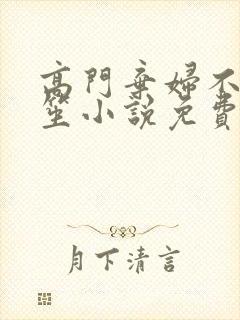 高門棄婦不
笙小說免費
月下清言